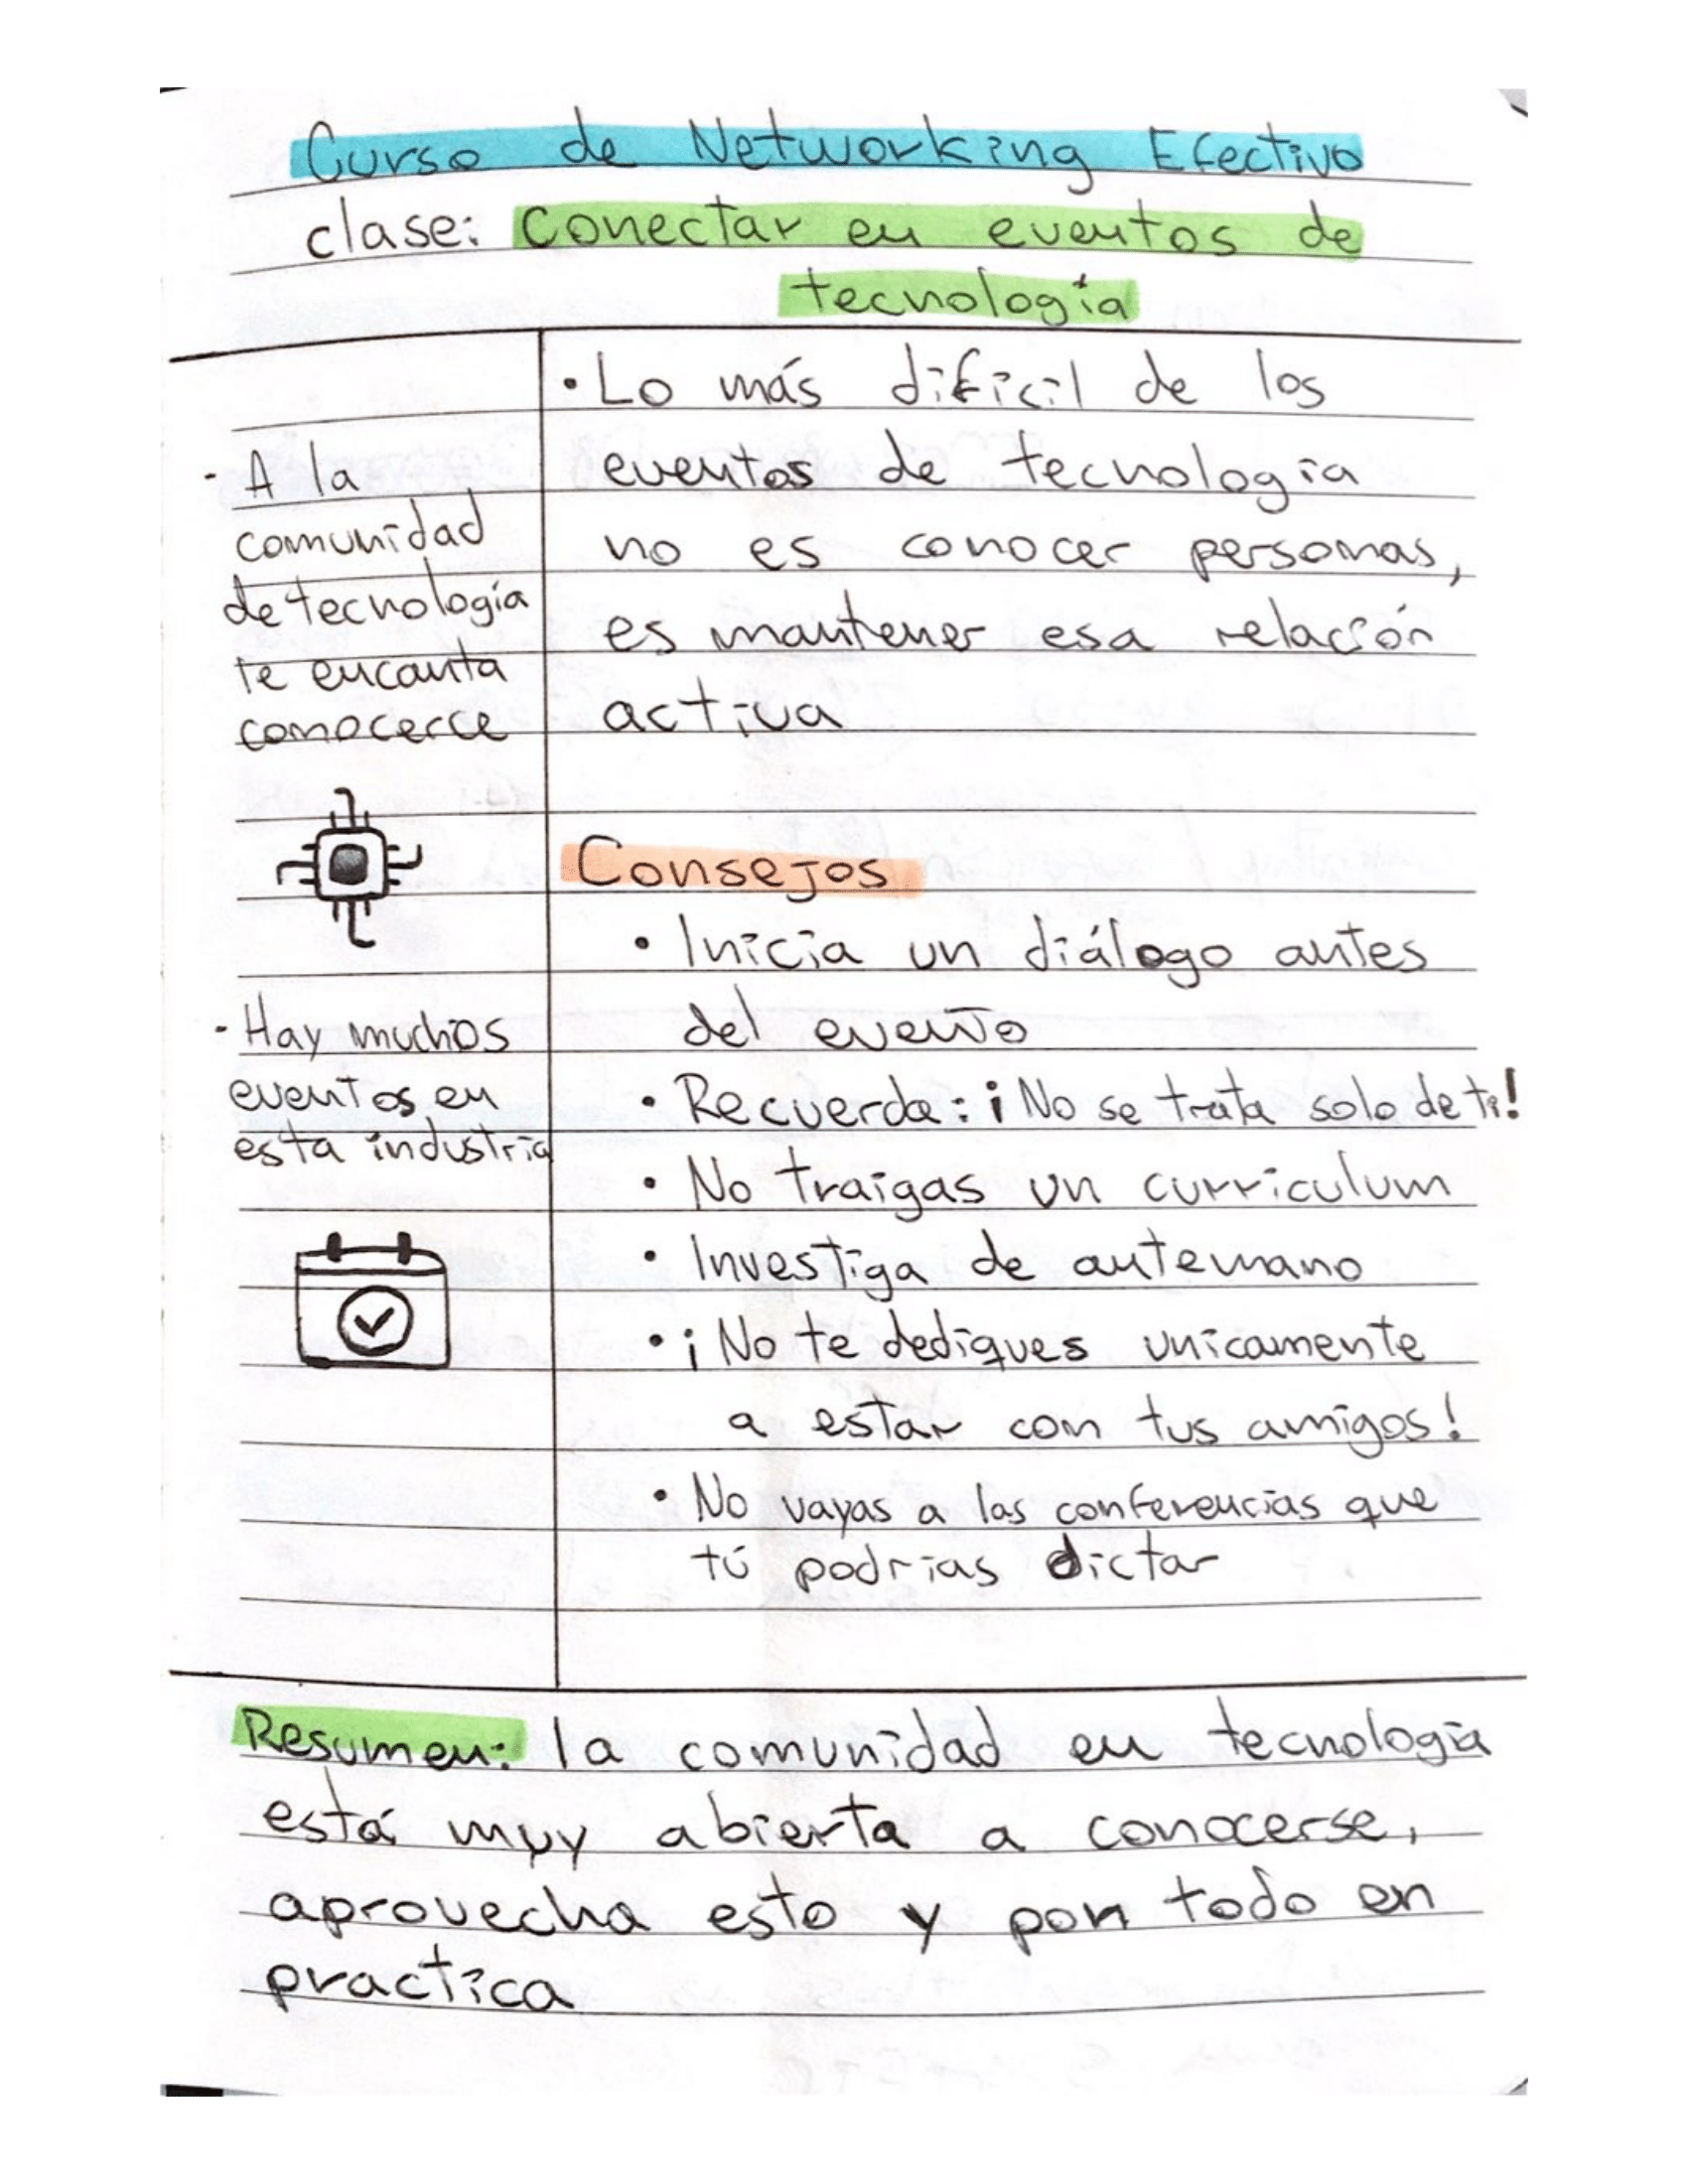 Curso de Networking Efectivo
clase: Conectar en eventos de
tecnología
- A la
comunidad
de tecnología
te encanta
conocerce
- Hay muchos
eventos en
esta industria
• Lo más dificil de los
eventos de tecnologia
no es conocer personas,
es mantener esa relación
activa
Consejos
• Inicia un diálogo antes
del evento
• Recuerda: ¡No se trata solo de ti!
• No traigas un curriculum
• Investiga de antemano
• ¡No te dediques unicamente
a estar con tus amigos!
• No vayas a las conferencias que
tú podrias dictar
Resumen: la comunidad en tecnología
está muy abierta a conocerse,
aprovecha esto y pon todo en
practica